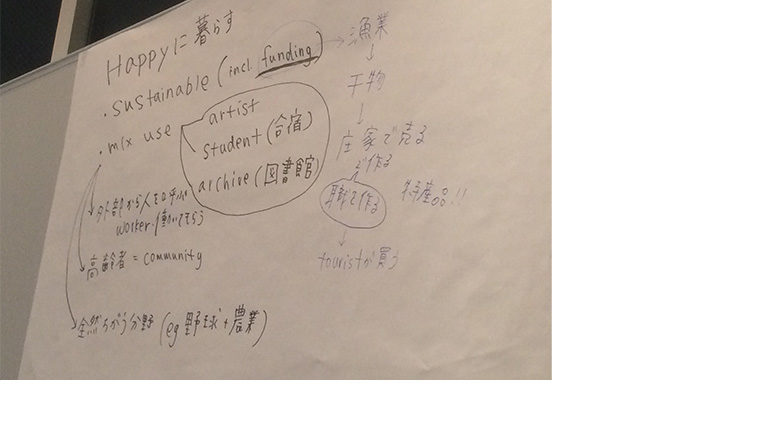 Happyに暮らす
・sustainable (incl. funding) → 漁業
↓
干物
↓
庄家で売る
で作る
職を作る
特産品!!
↓
touristが買う
・mix use
artist
student (合宿)
archive (図書館)
外部から人を呼ぶ
worker/働いてもらう
高齢者 = community
全然ちがう分野 (eg 野球 + 農業)